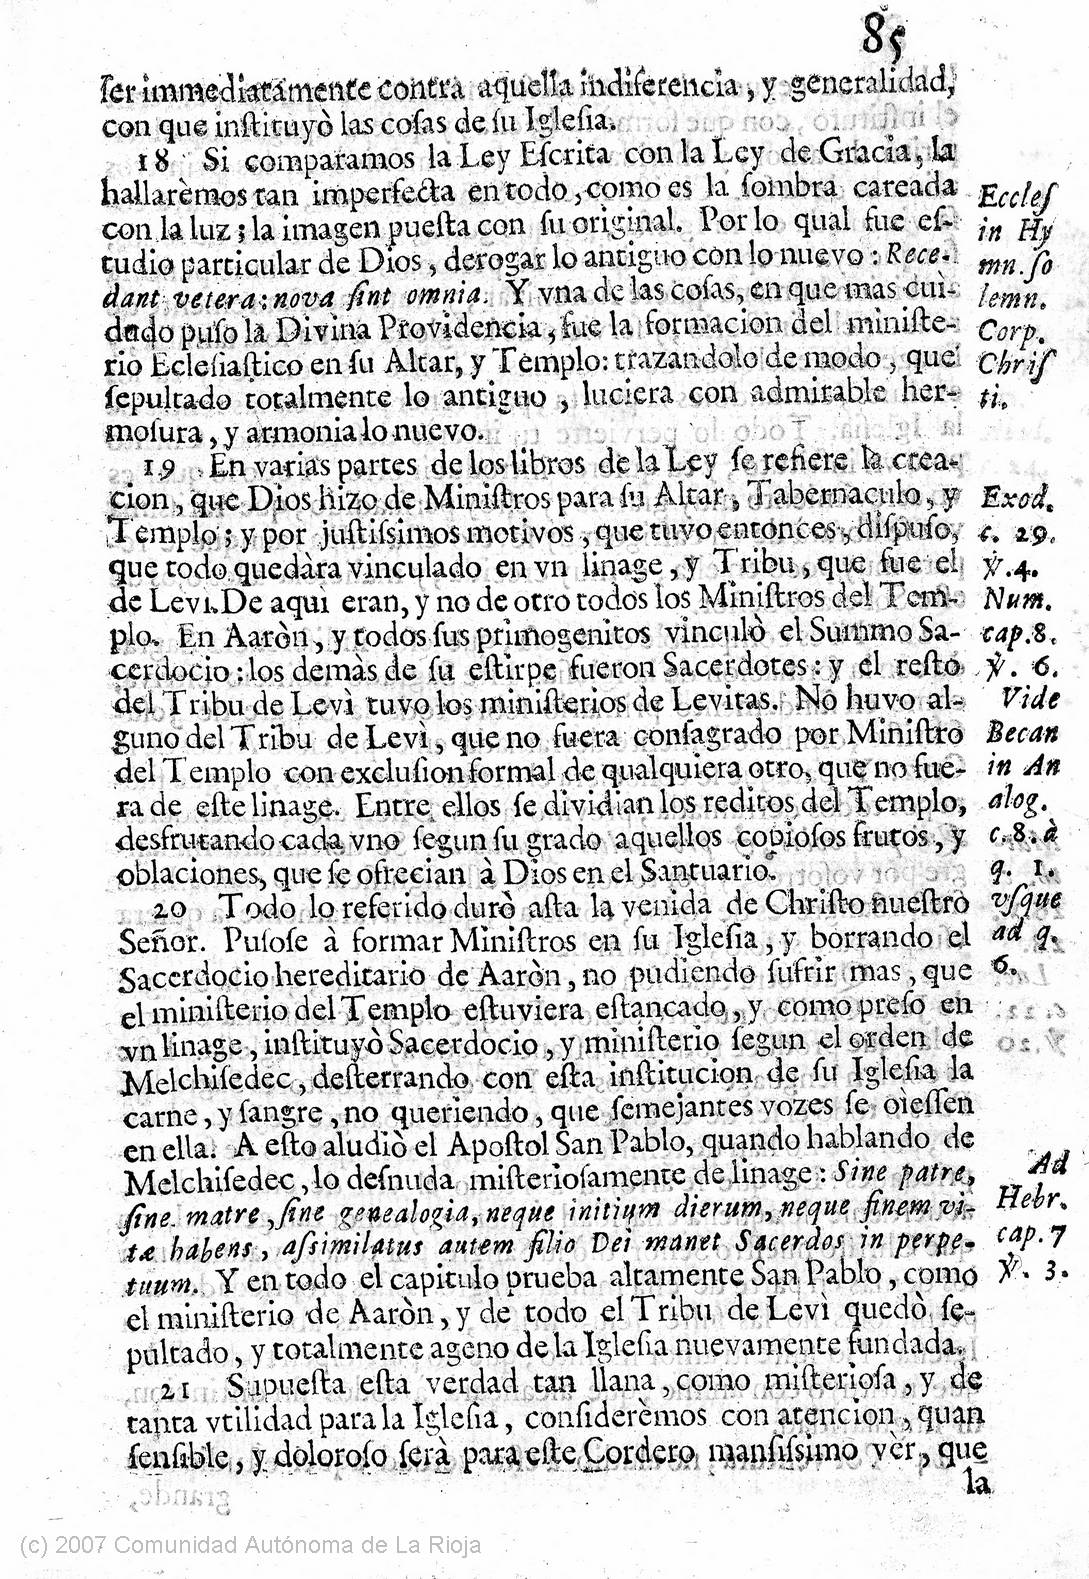 85
ſer immediatamente contra aquella indiferencia, y generalidad,
con que inſtituyò las coſas de ſu Igleſia.
18 Si comparamos la Ley Eſcrita con la Ley de Gracia, la
hallarèmos tan imperfecta en todo, como es la ſombra careada
con la luz; la imagen pueſta con ſu original. Por lo qual fue eſ-
tudio particular de Dios, derogar lo antiguo con lo nuevo: Rece-
dant vetera: nova ſint omnia. Y vna de las coſas, en que mas cui-
dado puſo la Divina Providencia, fue la formacion del miniſte-
rio Ecleſiaſtico en ſu Altar, y Templo: trazandolo de modo, que
ſepultado totalmente lo antiguo, luciera con admirable her-
moſura, y armonia lo nuevo.
Eccleſ
in Hy
mn. ſo
lemn.
Corp.
Chriſ
ti.
19 En varias partes de los libros de la Ley ſe refiere la crea-
cion, que Dios hizo de Miniſtros para ſu Altar, Tabernaculo, y
Templo; y por juſtiſsimos motivos, que tuvo entonces, diſpuſo,
que todo quedàra vinculado en vn linage, y Tribu, que fue el
de Levi. De aqui eran, y no de otro todos los Miniſtros del Tem-
plo. En Aaròn, y todos ſus primogenitos vinculò el Summo Sa-
cerdocio: los demàs de ſu eſtirpe fueron Sacerdotes: y el reſto
del Tribu de Levì tuvo los miniſterios de Levitas. No huvo al-
guno del Tribu de Levì, que no fuera conſagrado por Miniſtro
del Templo con excluſion formal de qualquiera otro, que no fue-
ra de eſte linage. Entre ellos ſe dividian los reditos del Templo,
desfrutando cada vno ſegun ſu grado aquellos copioſos frutos, y
oblaciones, que ſe ofrecian à Dios en el Santuario.
Exod.
c. 29.
℣. 4.
Num.
cap. 8.
℣. 6.
Vide
Becan
in An
alog.
c. 8. à
q. 1.
vſque
ad q.
6.
20 Todo lo referido durò aſta la venida de Chriſto nueſtro
Señor. Puſoſe à formar Miniſtros en ſu Igleſia, y borrando el
Sacerdocio hereditario de Aaròn, no pudiendo ſufrir mas, que
el miniſterio del Templo eſtuviera eſtancado, y como preſo en
vn linage, inſtituyò Sacerdocio, y miniſterio ſegun el orden de
Melchiſedec, deſterrando con eſta inſtitucion de ſu Igleſia la
carne, y ſangre, no queriendo, que ſemejantes vozes ſe oìeſſen
en ella. A eſto aludiò el Apoſtol San Pablo, quando hablando de
Melchiſedec, lo deſnuda miſterioſamente de linage: Sine patre,
ſine matre, ſine genealogia, neque initium dierum, neque finem vi-
tæ habens, aſsimilatus autem filio Dei manet Sacerdos in perpe-
tuum. Y en todo el capitulo prueba altamente San Pablo, como
el miniſterio de Aaròn, y de todo el Tribu de Levì quedò ſe-
pultado, y totalmente ageno de la Igleſia nuevamente fundada.
Ad
Hebr.
cap. 7
℣. 3.
21 Supueſta eſta verdad tan llana, como miſterioſa, y de
tanta vtilidad para la Igleſia, conſiderèmos con atencion, quan
ſenſible, y doloroſo ſerà para eſte Cordero manſiſsimo vèr, que
la
(c) 2007 Comunidad Autónoma de La Rioja